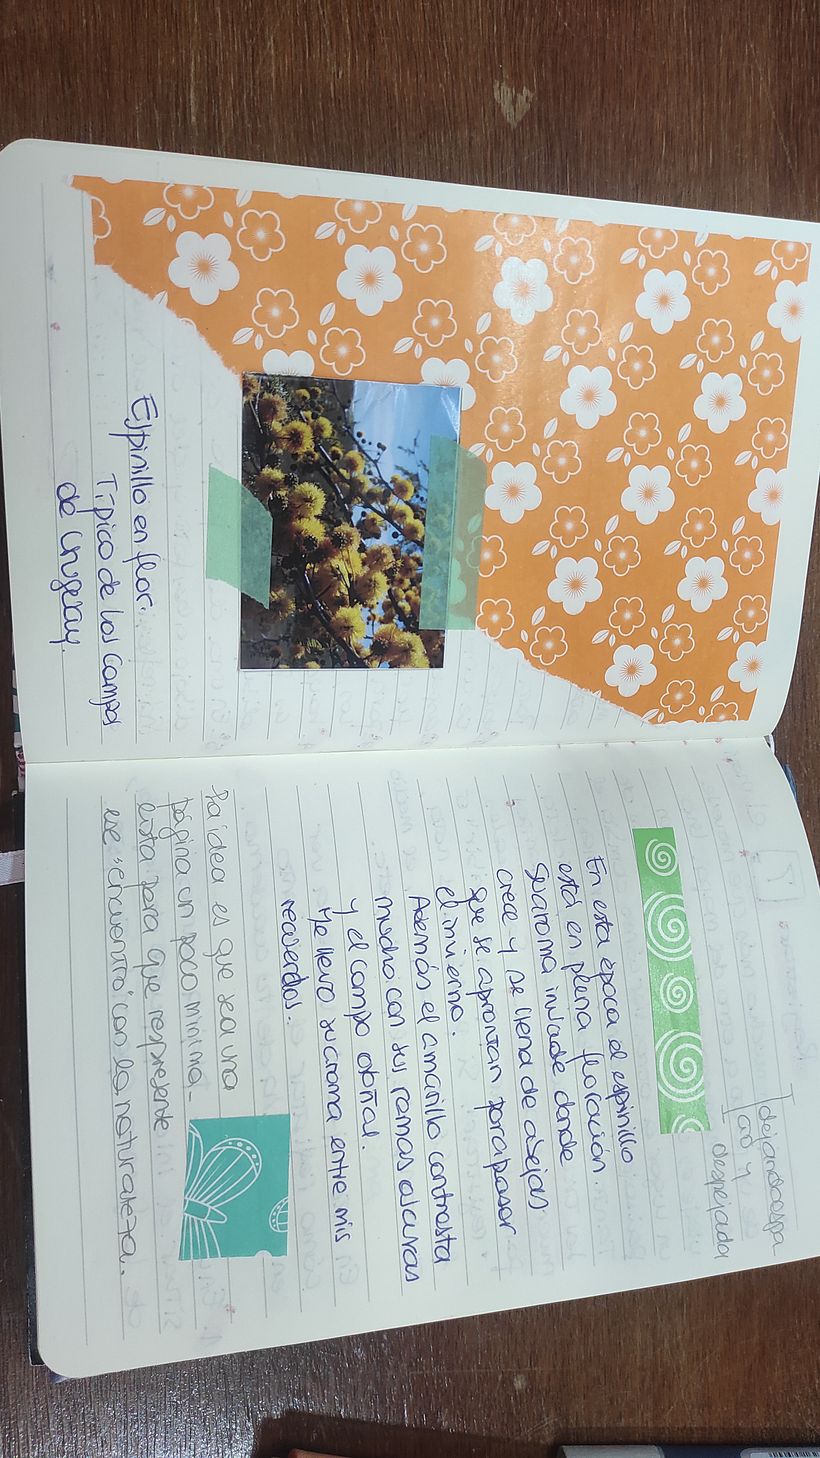 Espinillo en flor.
Típico de los campos
de Uruguay.
[dejando espa
cio y
despejado]
En esta época el espinillo
está en plena floración.
Su aroma invade donde
crece y se llena de abejas
que se aprontan para pasar
el invierno.
Además el amarillo contrasta
mucho con sus ramas oscuras
y el campo otoñal.
Me llevo su aroma entre mis
recuerdos.
La idea es que sea una
página un poco mínima-
lista para que represente
ese "encuentro" con la naturaleza.